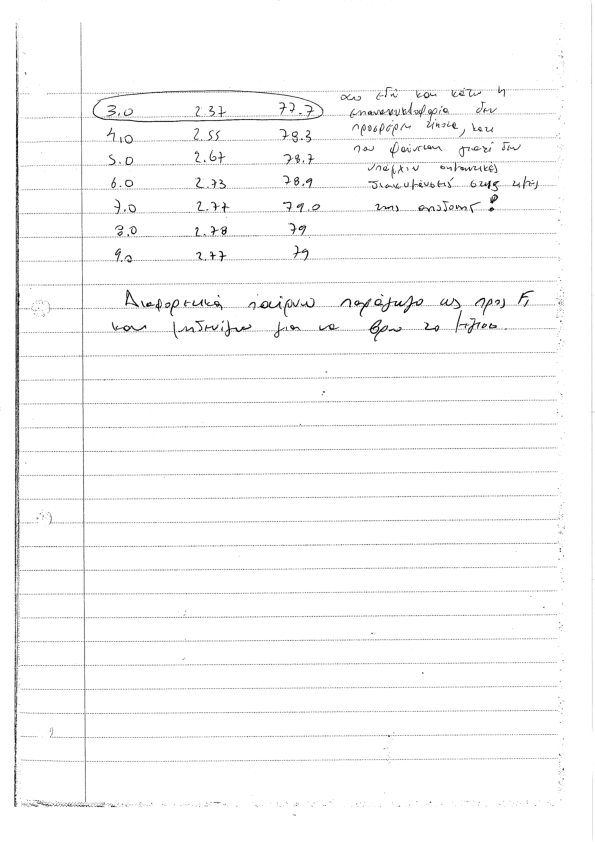 από εδώ και κάτω η
3.0 2.37 77.7 επανακυκλοφορία δεν
4.0 2.55 78.3 προσφέρει τίποτα, και
5.0 2.67 78.7 που φαίνεται γιατί δεν
υπάρχουν σημαντικές
6.0 2.73 78.9 διακυμάνσεις στις τιμές
7.0 2.77 79.0 της απόδοσης!
8.0 2.78 79
9.0 2.77 79
Διαφορετικά παίρνω παράγωγο ως προς F,
και μηδενίζω για να βρω το